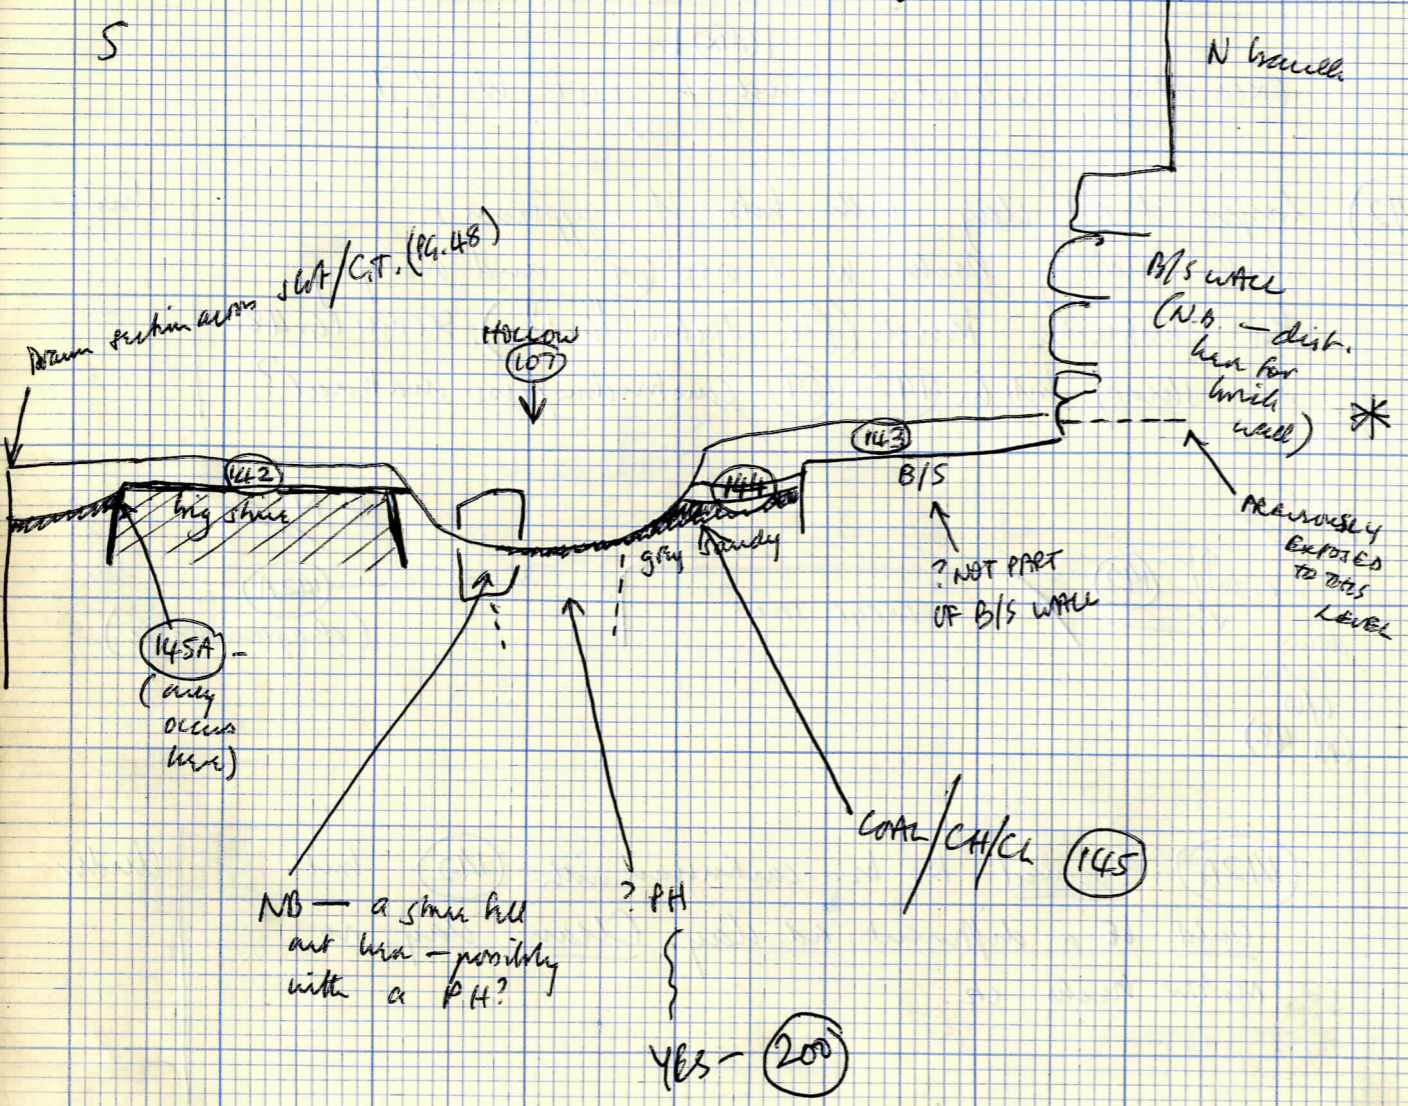 S
N baulk
Drawn section across slot/C.T. (PG. 48)
HOLLOW
107
B/S WALL
(N.B. — dist.
here for
brick
wall)
*
142
big stone
143
144
B/S
grey sandy
? NOT PART
OF B/S WALL
PREVIOUSLY
EXPOSED
TO THIS
LEVEL
145A -
(only
occurs
here)
COAL/CH/CL 145
NB — a stone fell
out here — possibly
with a PH?
? PH
YES - 200